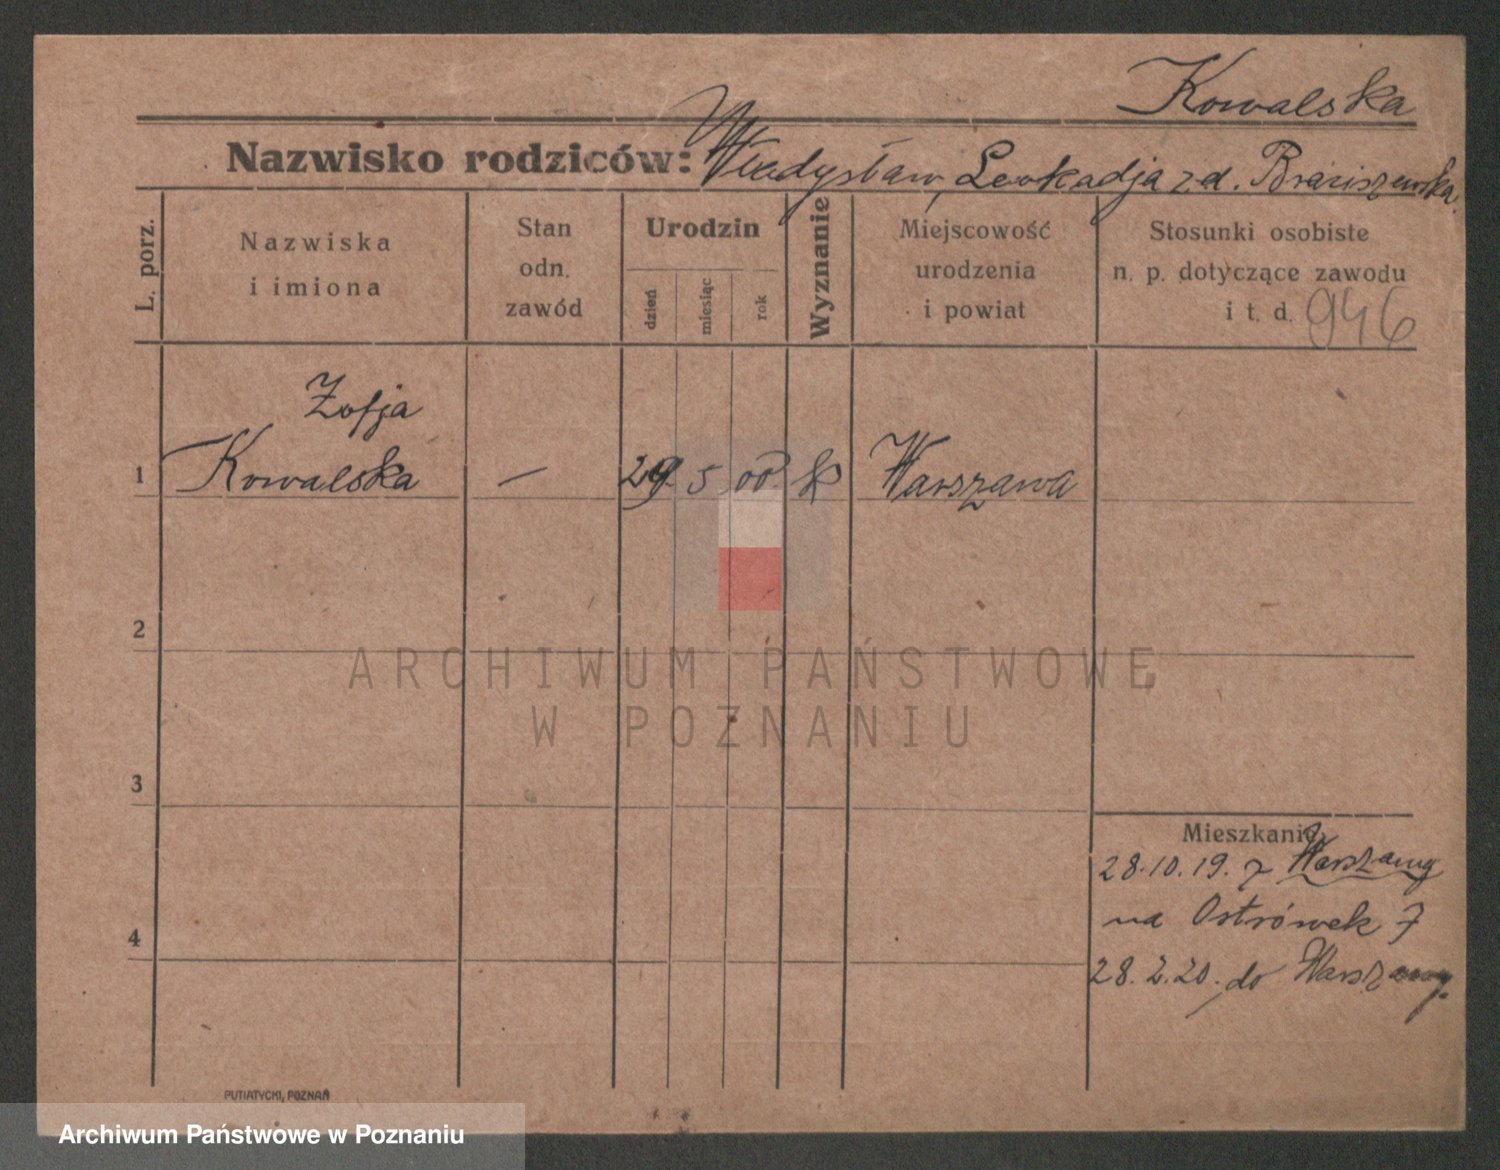 Kowalska
Nazwisko rodziców: Władysław, Leokadja zd.
L. porz.
Nazwiska
i imiona
Stan
odn.
zawód
Urodzin
dzień
miesiąc
rok
Wyznanie
Miejscowość
urodzenia
i powiat
Stosunki osobiste
n. p. dotyczące zawodu
i t. d. 946
Zofja
1 Kowalska — 29. 5. 00. Warszawa
2
3
4
Mieszkanie
28.10.19. z Warszawy
na Ostrówek 7
28.2.20. do Warszawy.
PUTIATYCKI, POZNAŃ
ARCHIWUM PAŃSTWOWE
W POZNANIU
Archiwum Państwowe w Poznaniu